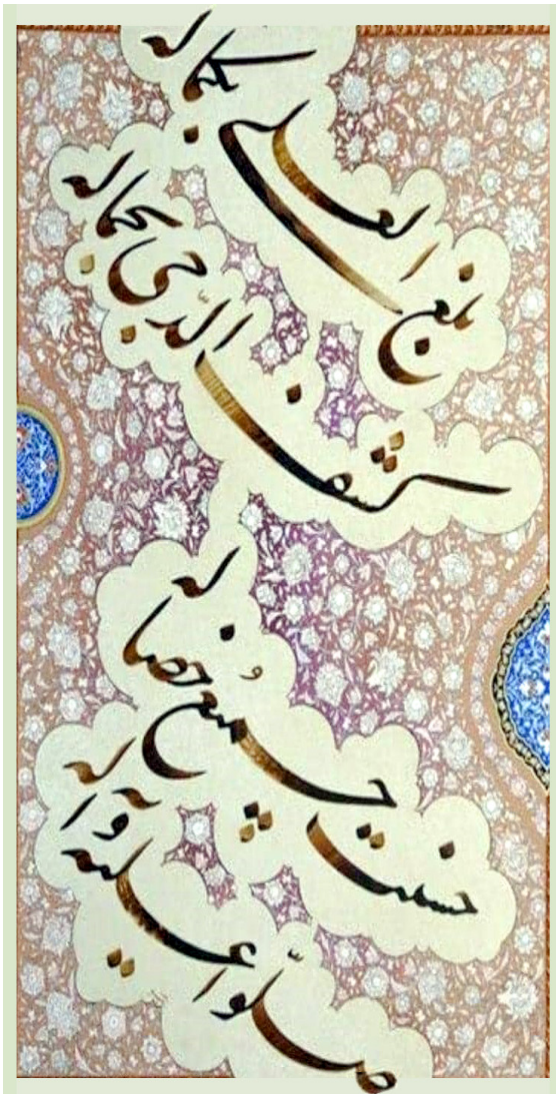 بلغ العلی بکماله
کشف الدّجی بجماله
حسنت جمیعُ خصاله
صلّوا علیه و آله